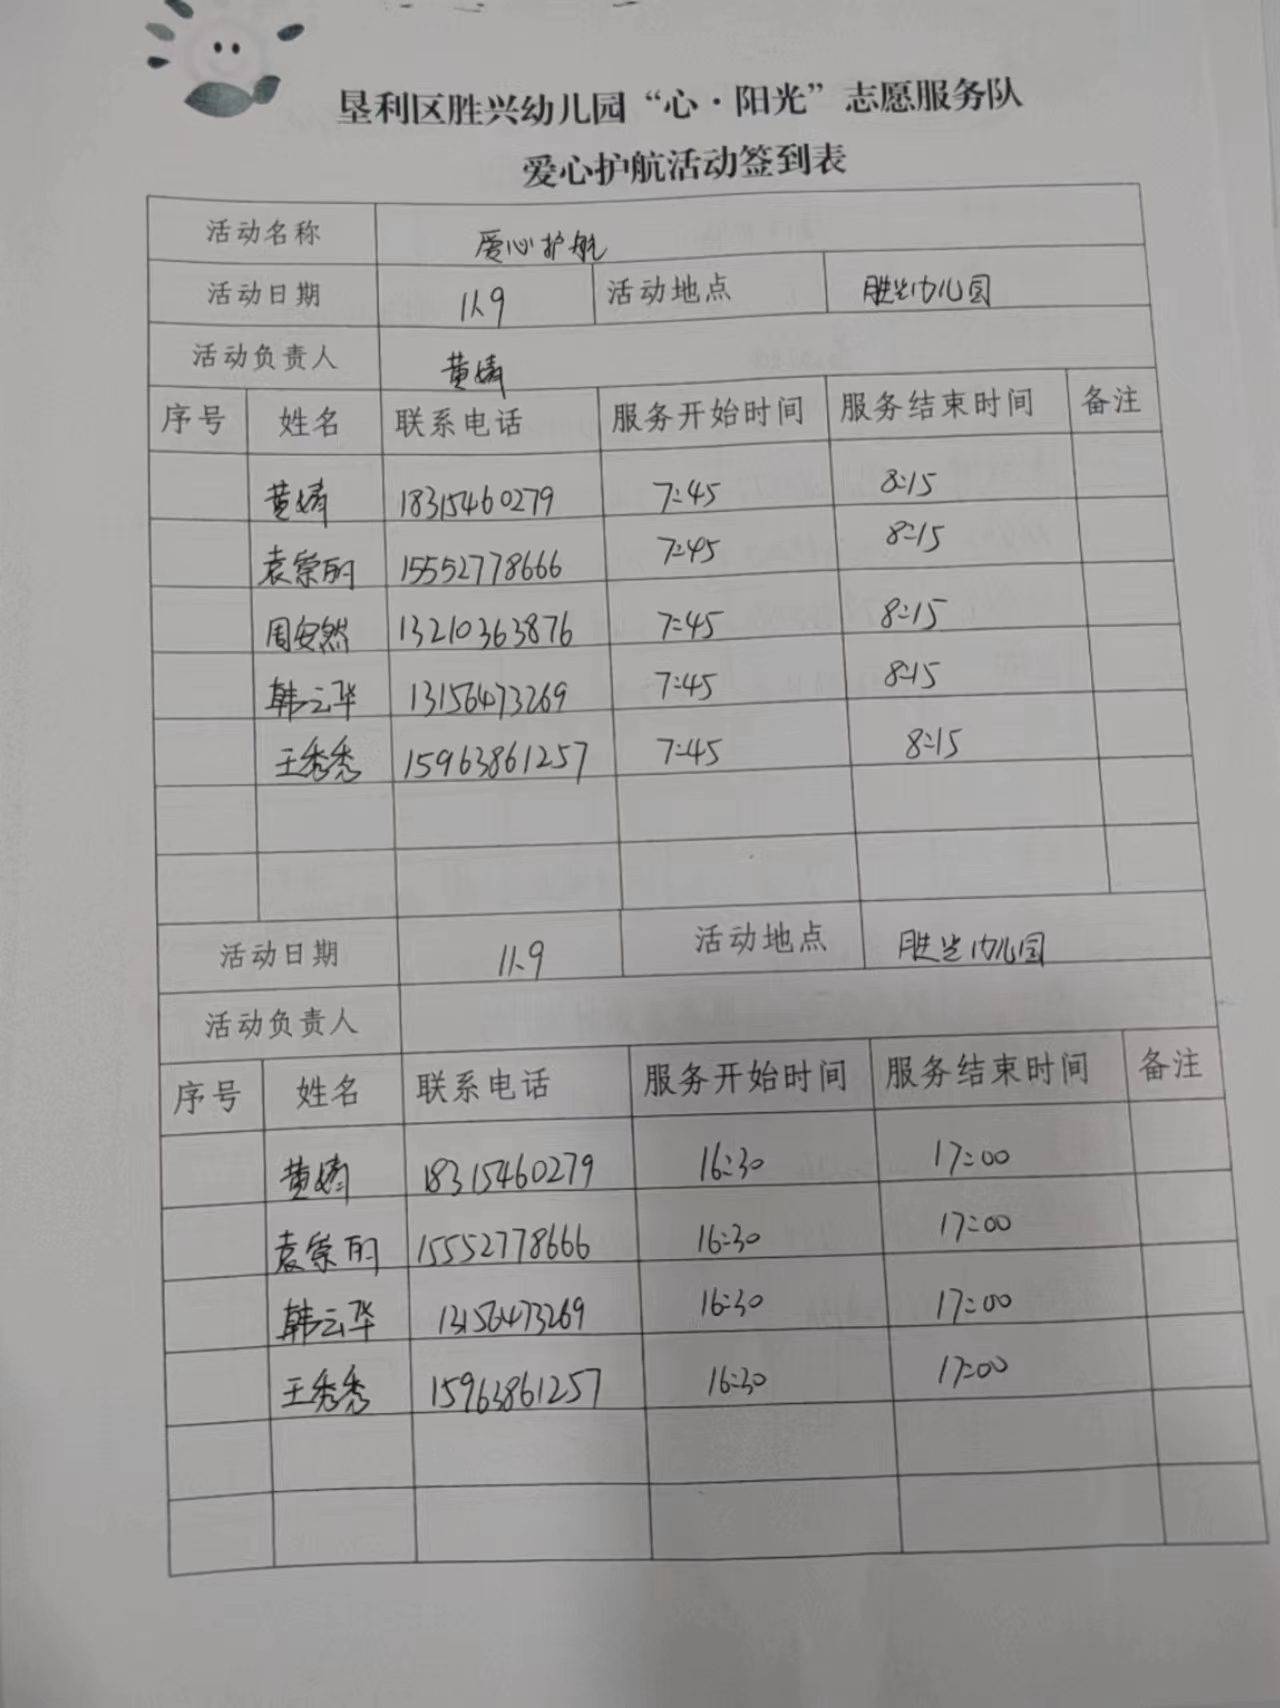 垦利区胜兴幼儿园“心·阳光”志愿服务队
爱心护航活动签到表
活动名称 爱心护航
活动日期 11.9 活动地点 胜兴幼儿园
活动负责人 黄婧
序号 姓名 联系电话 服务开始时间 服务结束时间 备注
黄婧 18315460279 7:45 8:15
袁崇 15552778666 7:45 8:15
周安然 13210363876 7:45 8:15
韩云华 13156473269 7:45 8:15
王秀秀 15963861257 7:45 8:15
活动日期 11.9 活动地点 胜兴幼儿园
活动负责人
序号 姓名 联系电话 服务开始时间 服务结束时间 备注
黄婧 18315460279 16:30 17:00
袁崇 15552778666 16:30 17:00
韩云华 13156473269 16:30 17:00
王秀秀 15963861257 16:30 17:00